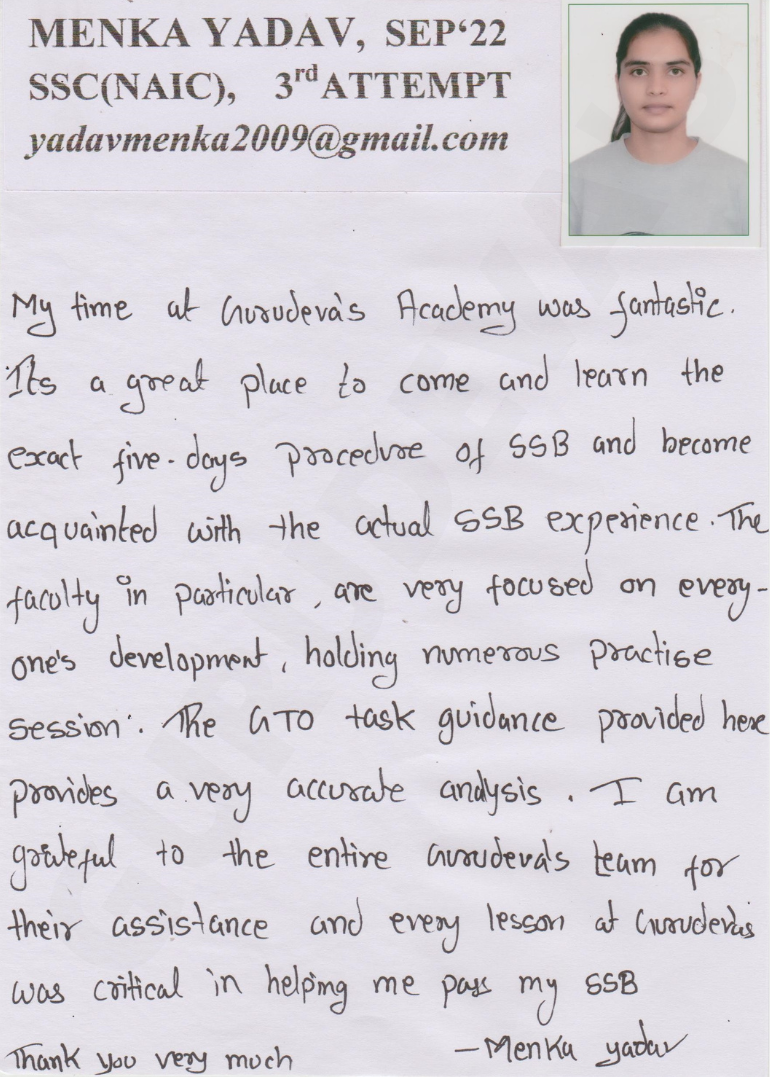 MENKA YADAV, SEP‘22
SSC(NAIC), 3rd ATTEMPT
yadavmenka2009@gmail.com
My time at Gurudeva's Academy was fantastic.
Its a great place to come and learn the
exact five-days procedure of SSB and become
acquainted with the actual SSB experience. The
faculty in particular, are very focused on every-
one's development, holding numerous practise
session. The GTO task guidance provided here
provides a very accurate analysis. I am
grateful to the entire Gurudeva's team for
their assistance and every lesson at Gurudevas
was critical in helping me pass my SSB
Thank you very much
-Menka yadav